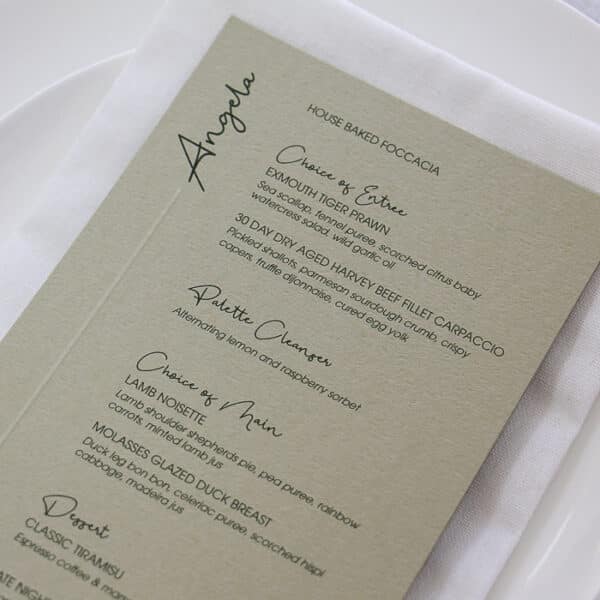 Angela
HOUSE BAKED FOCCACIA
Choice of Entree
EXMOUTH TIGER PRAWN
Sea scallop, fennel puree, scorched citrus baby
watercress salad, wild garlic oil
30 DAY DRY AGED HARVEY BEEF FILLET CARPACCIO
Pickled shallots, parmesan sourdough crumb, crispy
capers, truffle dijonnaise, cured egg yolk
Palette Cleanser
Alternating lemon and raspberry sorbet
Choice of Main
LAMB NOISETTE
Lamb shoulder shepherds pie, pea puree, rainbow
carrots, minted lamb jus
MOLASSES GLAZED DUCK BREAST
Duck leg bon bon, celeriac puree, scorched hispi
cabbage, madeira jus
Dessert
CLASSIC TIRAMISU
Espresso coffee &
NIGHT